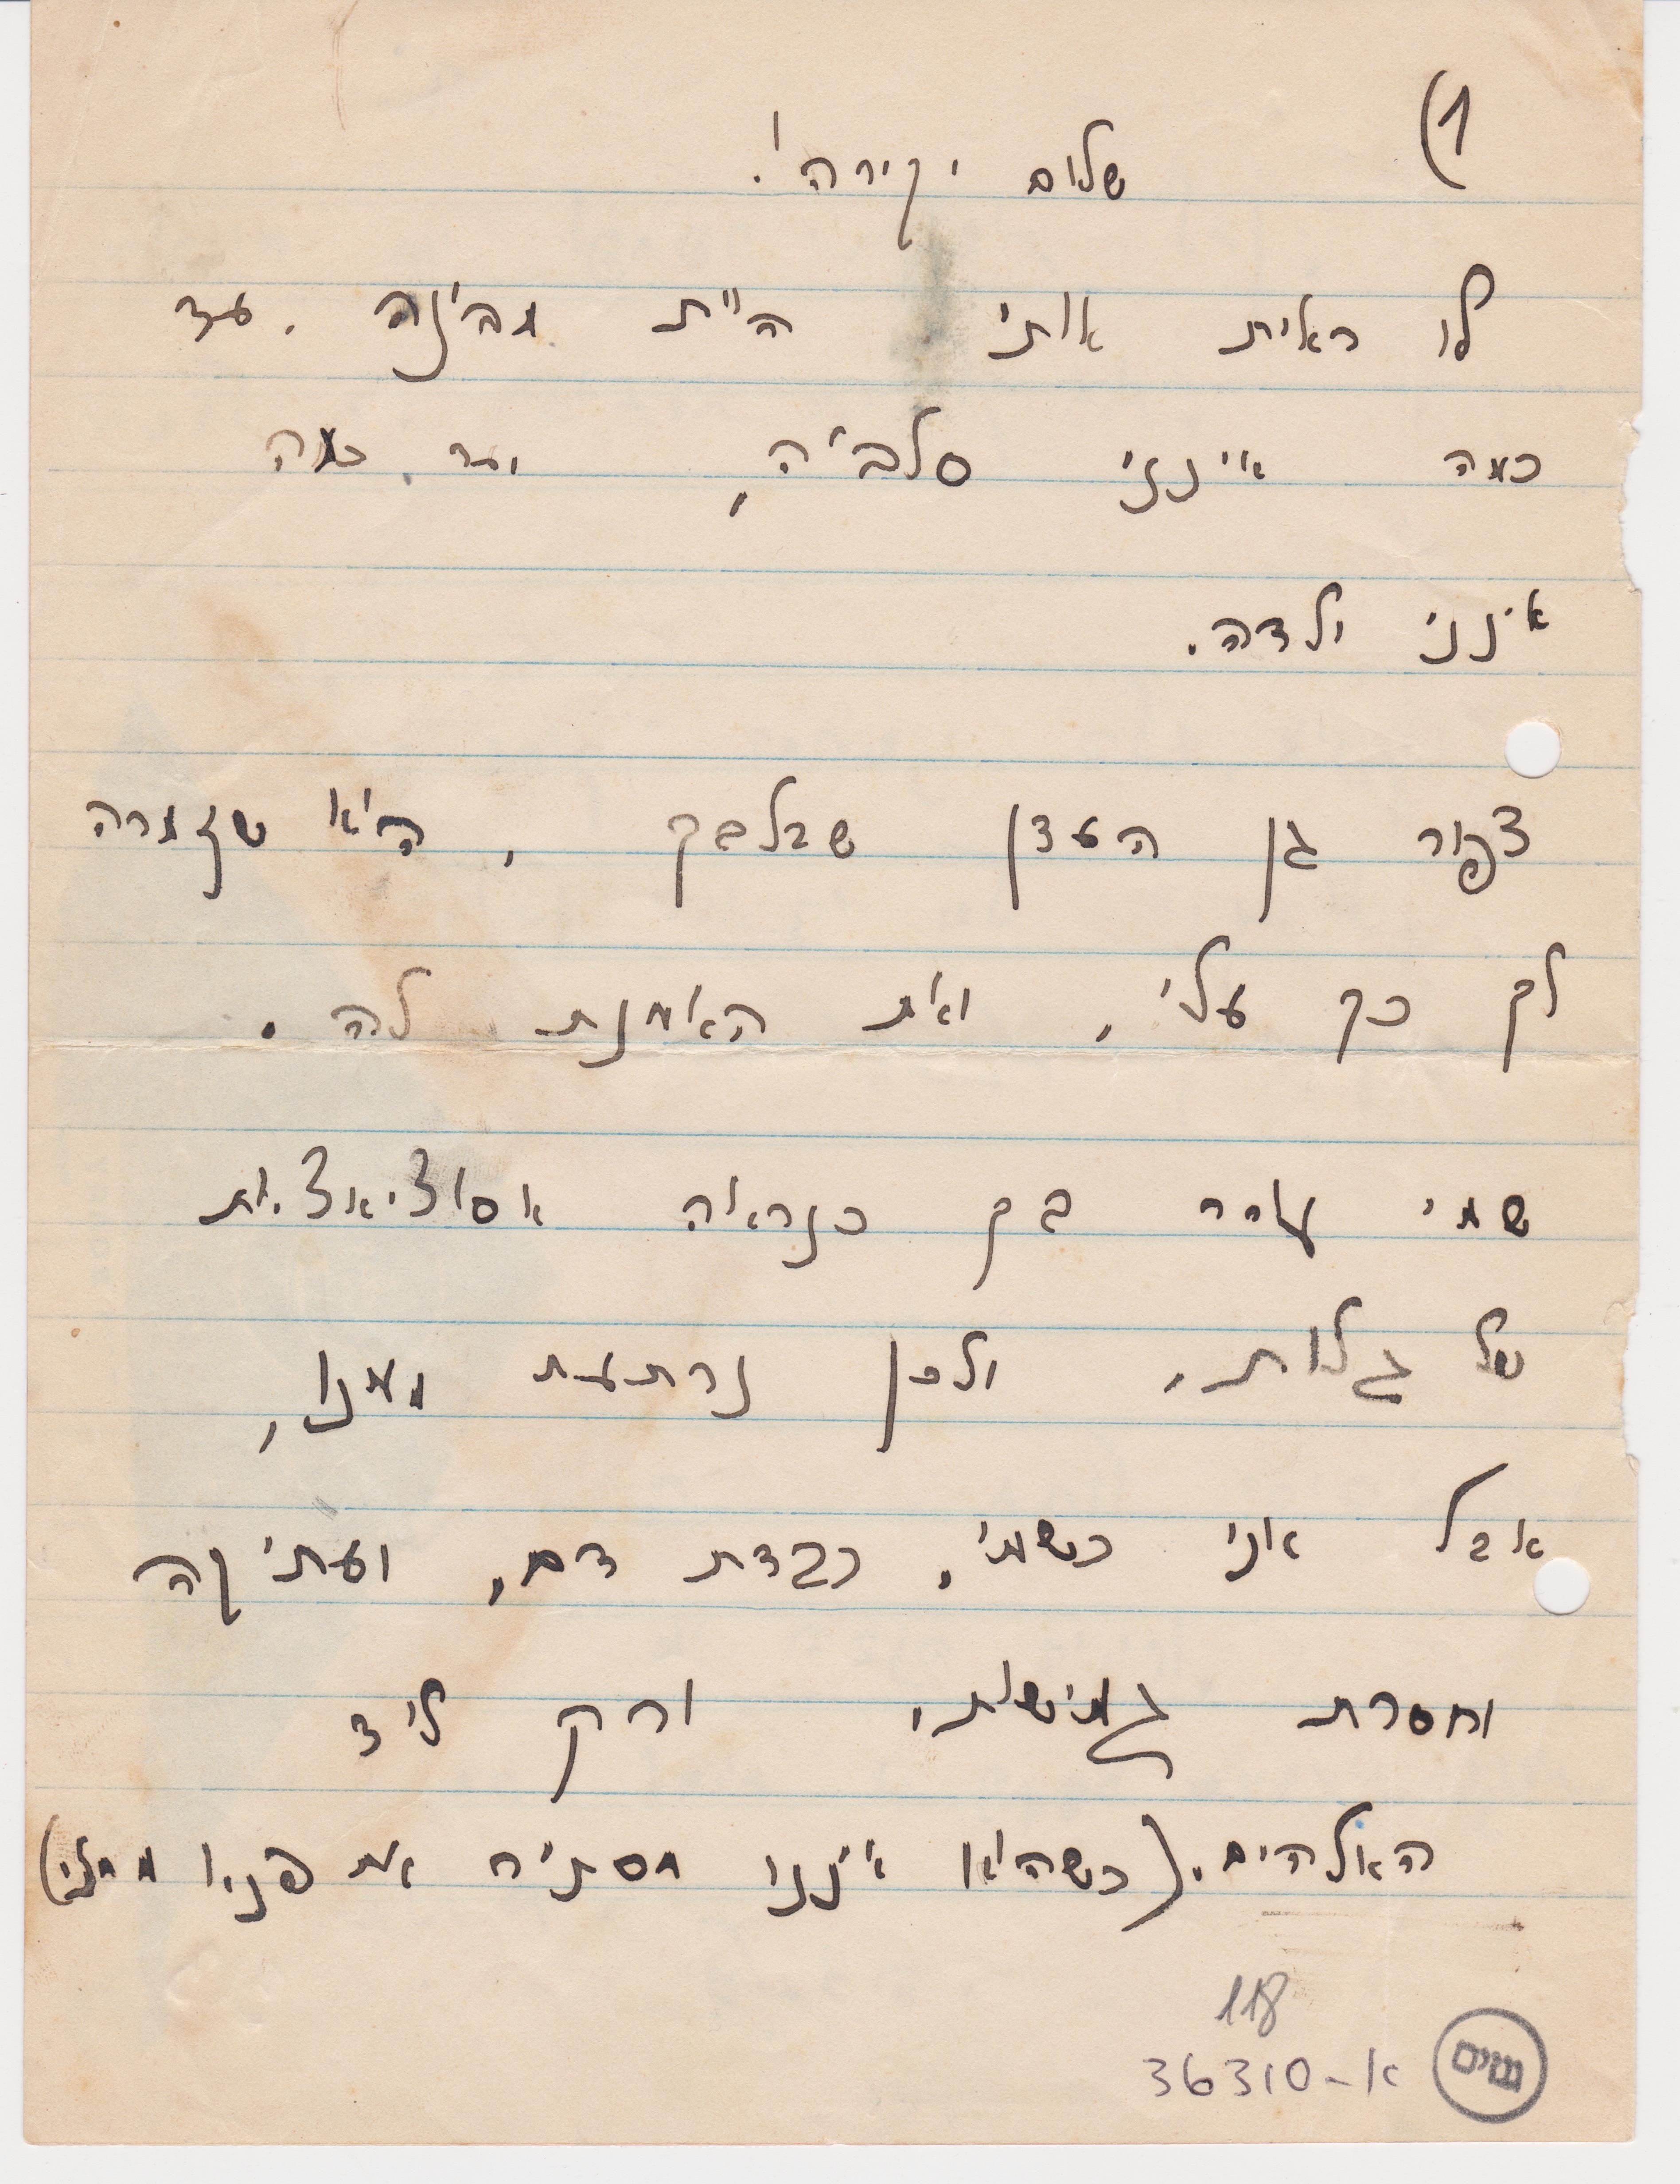 1)
שלום יקירה!
לו ראית אותי היית מבינה, עד
כמה אינני סלבית, ועד כמה
אינני ילדה.
צפור גן העדן שבלבך, היא שזמרה
לך כך עלי, ואת האמנת לה.
שמי עורר בך כנראה אסוציאציות
של גלות, ולכן נרתעת ממנו,
אבל אני כשמי, כבדת דם, ועתיקה
וחסרת גמישות, ורק ליד
האלהים. (כשהוא איננו מסתיר את פניו ממני)
118
א-36310